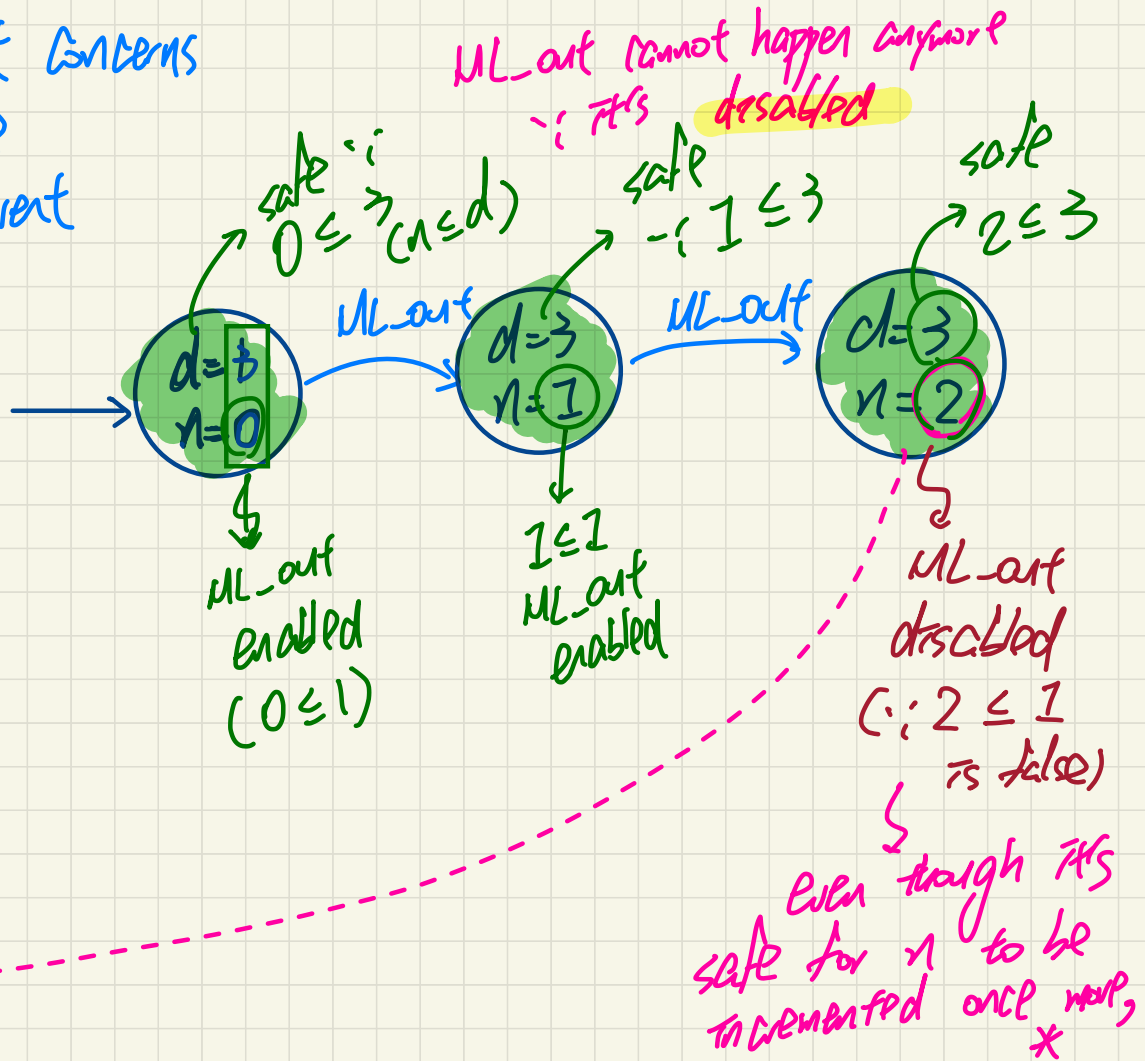 concerns
ML_out cannot happen anymore
∵ it's disabled
safe ∵
0 ≤ 3 (n ≤ d)
safe
∵ 1 ≤ 3
safe
2 ≤ 3
ML_out
ML_out
d=
n=0
d=3
n=1
d=3
n=2
ML_out
enabled
(0 ≤ 1)
1 ≤ 1
ML_out
enabled
ML_out
disabled
(∵ 2 ≤ 1
is false)
even though it's
safe for n to be
incremented once more,
*